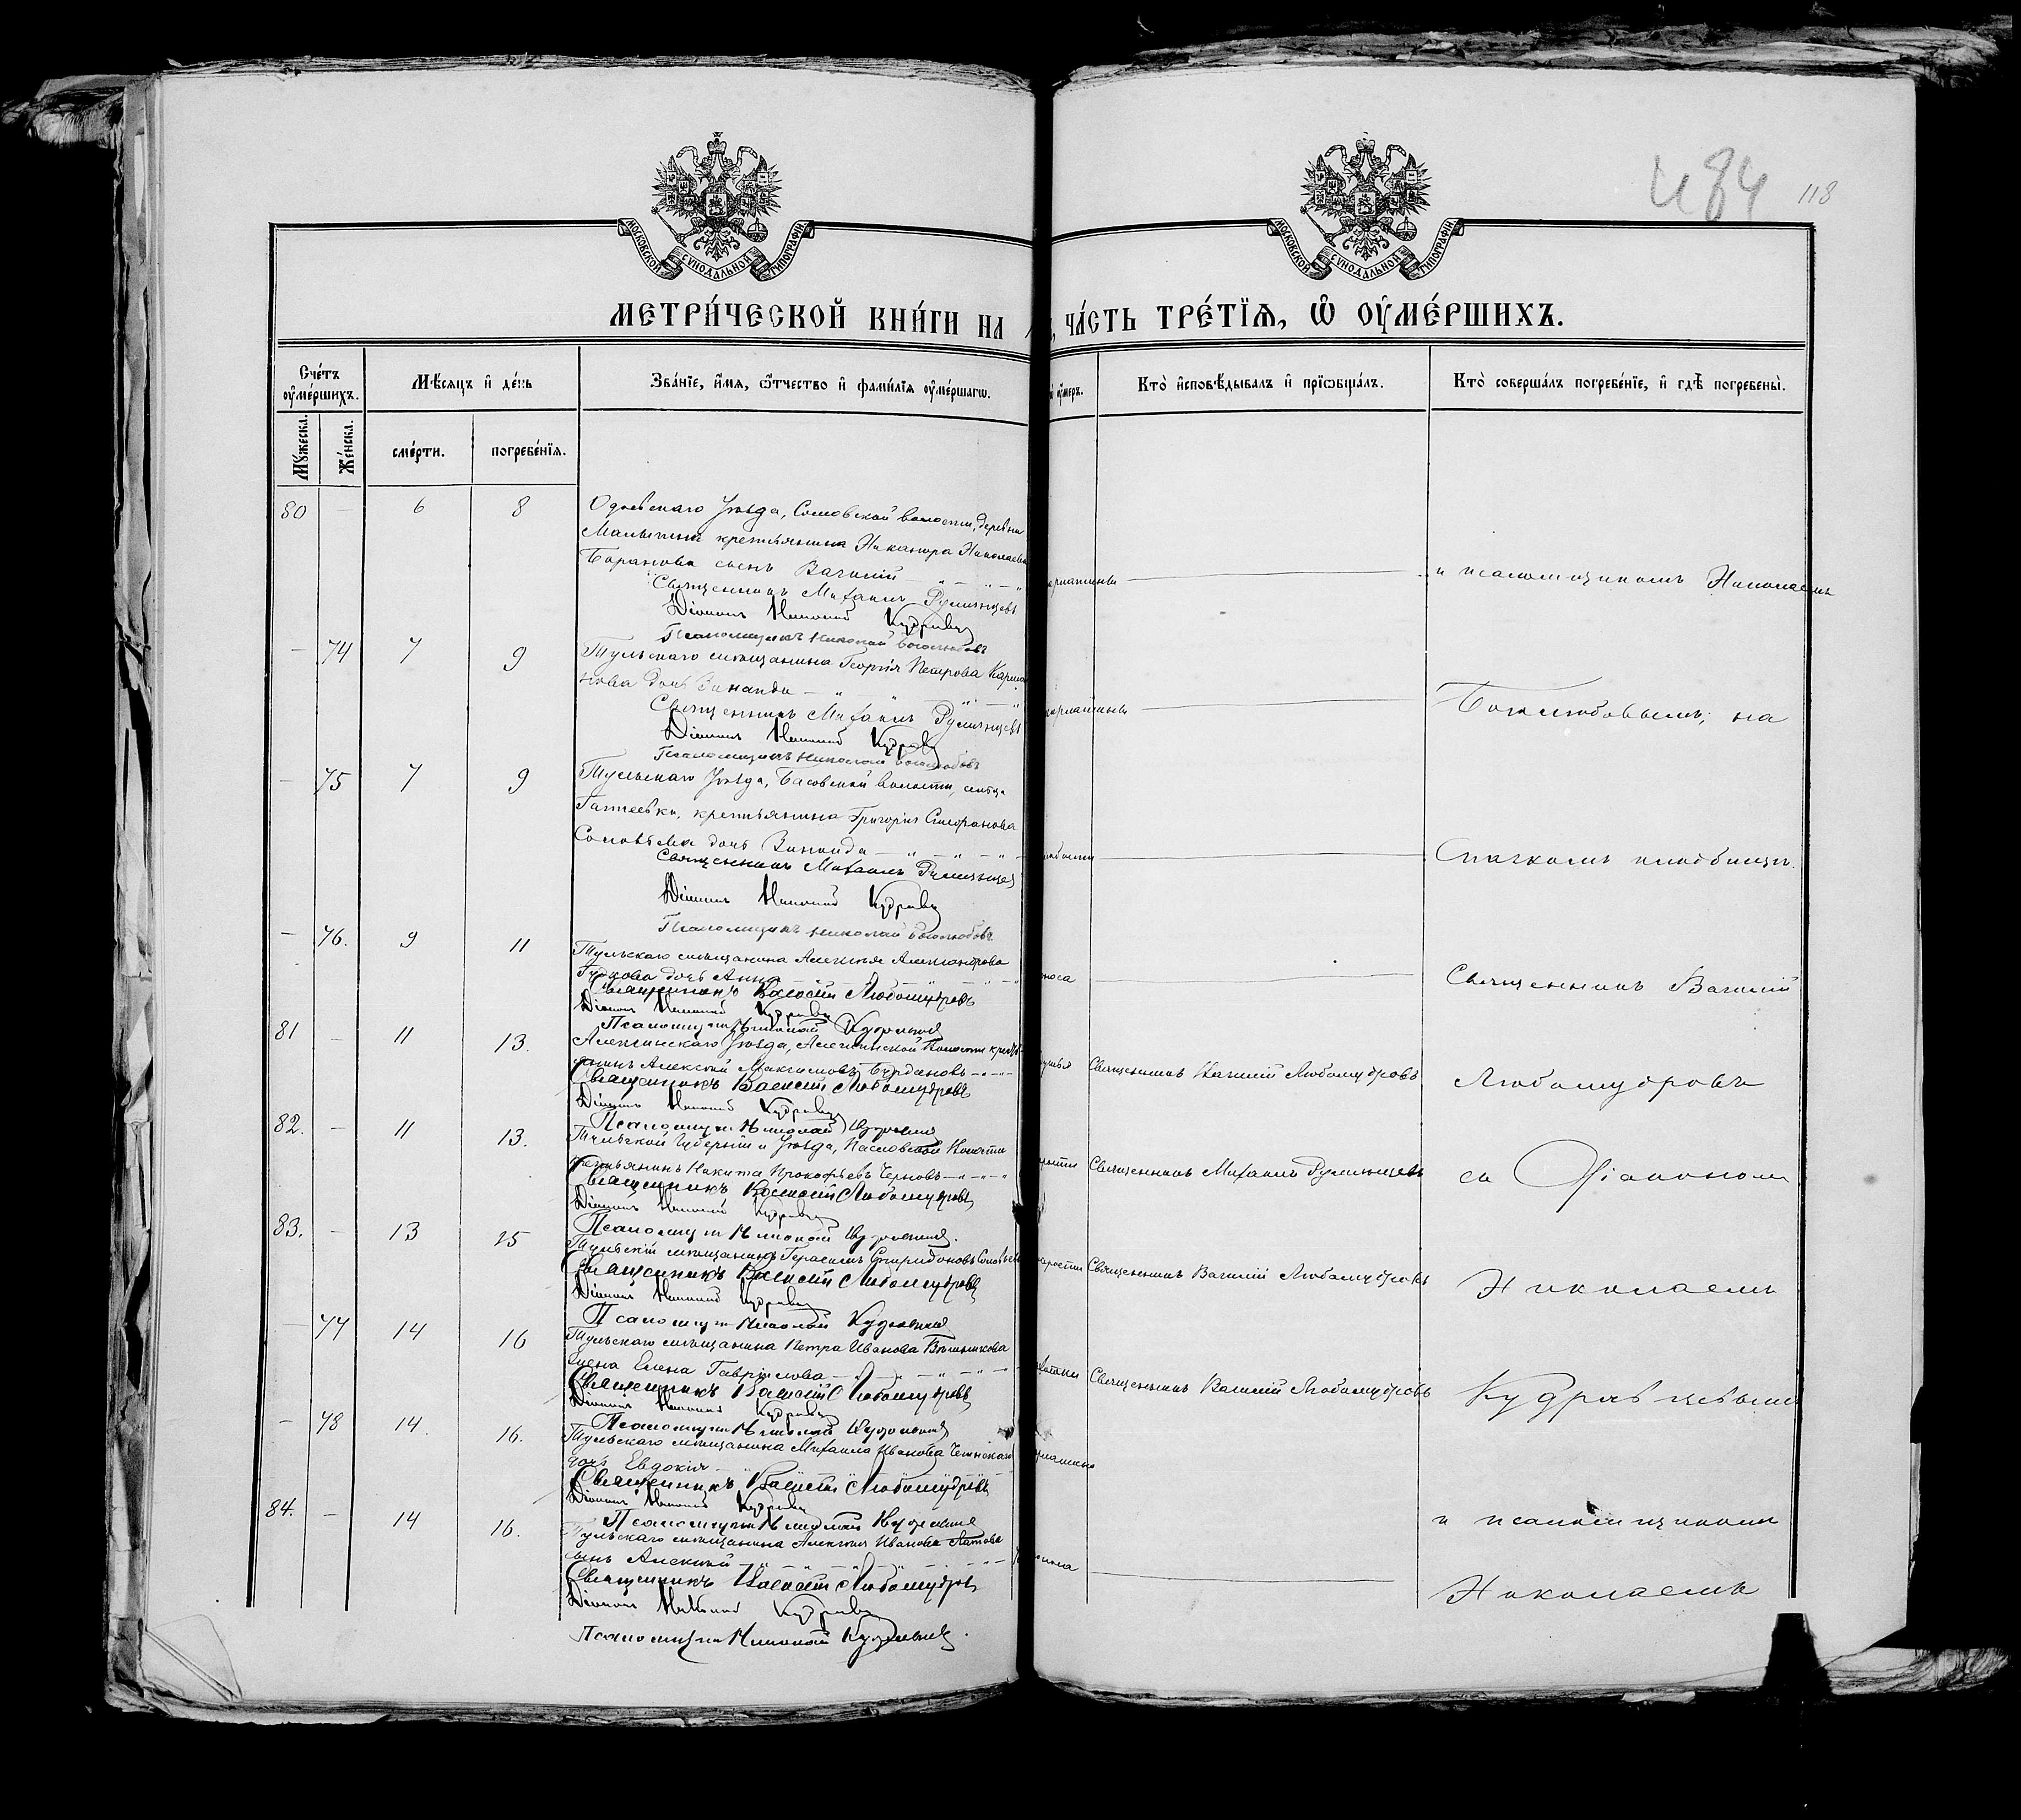 484 118
МОСКОВСКОЙ СѴНОДАЛЬНОЙ ТИПОГРАФІИ
МОСКОВСКОЙ СѴНОДАЛЬНОЙ ТИПОГРАФІИ
МЕТРИ́ЧЕСКОЙ КНИ́ГИ НА
ЧА́СТЬ ТРЕ́ТЇѦ, Ѡ҆ ОУ҆МЕ́РШИХЪ.
Сче́тъ оу҆ме́ршихъ.
Мѣ́сяцъ и҆ де́нь
Зва́нїе, и҆́мя, ѻ҆́тчество и҆ фами́лїя оу҆ме́ршагѡ.
оу҆́меръ.
Кто̀ и҆сповѣ́дывалъ и҆ прїѡбща́лъ.
Кто̀ соверша́лъ погребе́нїе, и҆ гдѣ̀ погребены̀.
Мꙋ́жеска.
Же́нска.
сме́рти.
погребе́нїя.
80 — 6 8 Одоевскаго уѣзда, Сомовской волости, деревни
крестьянина Никанора Николаева
Баранова сынъ Василій
Священникъ Михаилъ Румянцевъ
Діаконъ Николай Кудрявцевъ
Псаломщикъ Николай Боголюбовъ
и псаломщикомъ Николаемъ
— 74 7 9 Тульскаго мѣщанина Георгія Петрова
дочь Зинаида
Священникъ Михаилъ Румянцевъ
Діаконъ Николай Кудрявцевъ
Псаломщикъ Николай Боголюбовъ
Боголюбовымъ, на
— 75 7 9 Тульскаго уѣзда, Басовской волости, сельца
крестьянина Григорія Стефанова
Соловьева дочь Зинаида
Священникъ Михаилъ Румянцевъ
Діаконъ Николай Кудрявцевъ
Псаломщикъ Николай Боголюбовъ
Спасскомъ кладбищѣ.
— 76. 9 11 Тульскаго мѣщанина Алексѣя Александрова
дочь Анна
Священникъ Василій Любомудровъ
Діаконъ Николай Кудрявцевъ
Псаломщикъ Николай
Священникъ Василій
81 — 11 13. Алексинскаго уѣзда, Алексинской волости
Алексѣй Максимовъ Бурдановъ
Священникъ Василій Любомудровъ
Діаконъ Николай Кудрявцевъ
Псаломщикъ Николай
Священникъ Василій Любомудровъ
Любомудровъ
82. — 11 13. Тульской губерніи и уѣзда, волости
крестьянинъ Никита Прокофьевъ Черновъ
Священникъ Василій Любомудровъ
Діаконъ Николай Кудрявцевъ
Псаломщикъ Николай
Священникъ Михаилъ Румянцевъ
съ Діакономъ
83. — 13 15 Тульскій мѣщанинъ Герасимъ Спиридоновъ
Священникъ Василій Любомудровъ
Діаконъ Николай Кудрявцевъ
Псаломщикъ Николай
Священникъ Василій Любомудровъ
Николаемъ
— 77 14 16 Тульскаго мѣщанина Петра Иванова
жена Елена Гаврилова
Священникъ Василій Любомудровъ
Діаконъ Николай Кудрявцевъ
Псаломщикъ Николай
Священникъ Василій Любомудровъ
Кудрявцевымъ
— 78 14. 16. Тульскаго мѣщанина Михаила Иванова
дочь Евдокія
Священникъ Василій Любомудровъ
Діаконъ Николай Кудрявцевъ
Псаломщикъ Николай
84. — 14 16. Тульскаго мѣщанина Алексѣя Иванова
сынъ Алексѣй
Священникъ Василій Любомудровъ
Діаконъ Николай Кудрявцевъ
Псаломщикъ Николай
и псаломщикомъ
Николаемъ